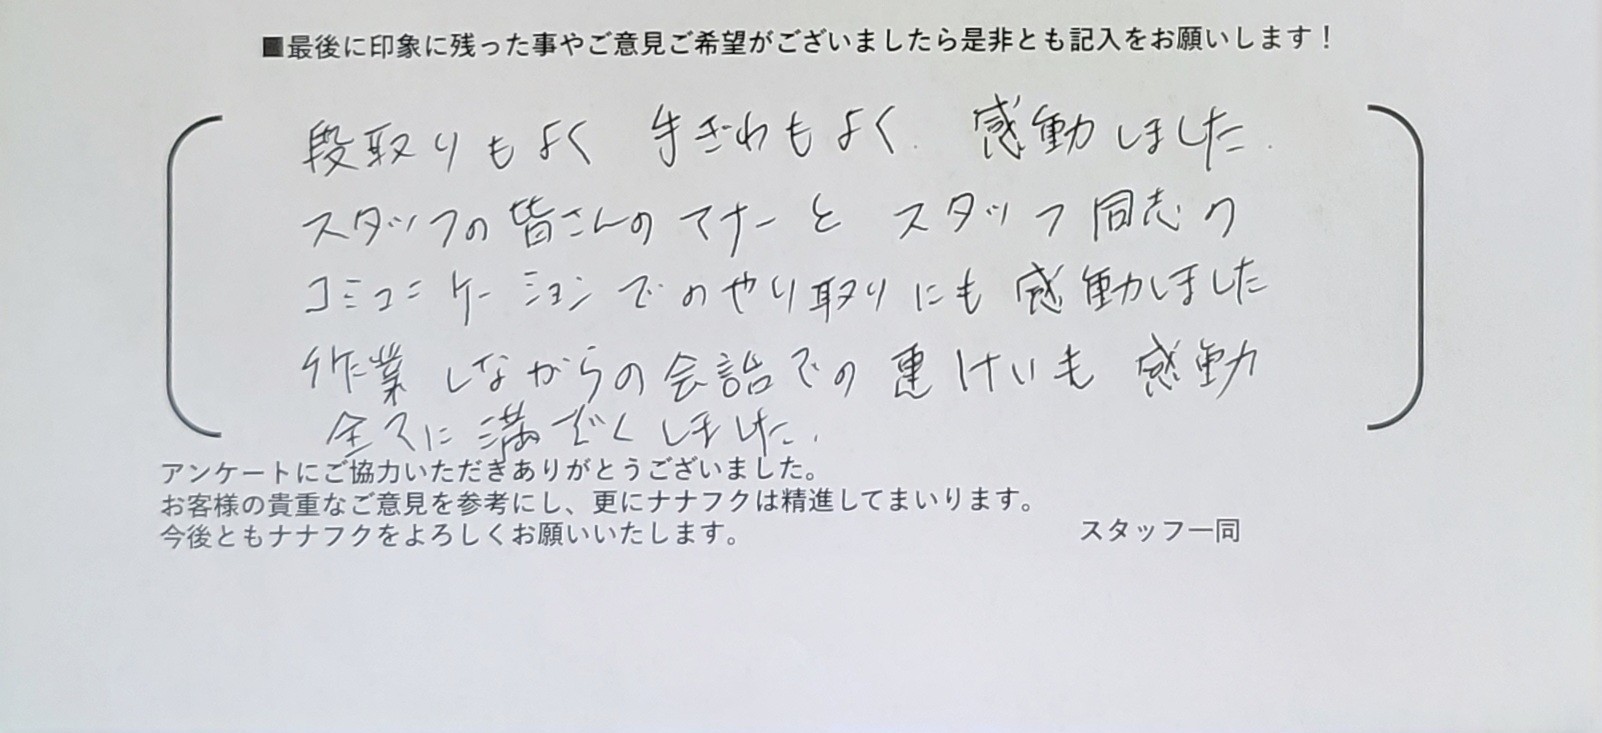 ■最後に印象に残った事やご意見ご希望がございましたら是非とも記入をお願いします！
段取りもよく 手ぎわもよく. 感動しました.
スタッフの皆さんのマナーと スタッフ同志の
コミュニケーションでのやり取りにも 感動しました
作業しながらの会話での 連けいも 感動
全てに満ぞくしました.
アンケートにご協力いただきありがとうございました。
お客様の貴重なご意見を参考にし、更にナナフクは精進してまいります。
今後ともナナフクをよろしくお願いいたします。 スタッフ一同